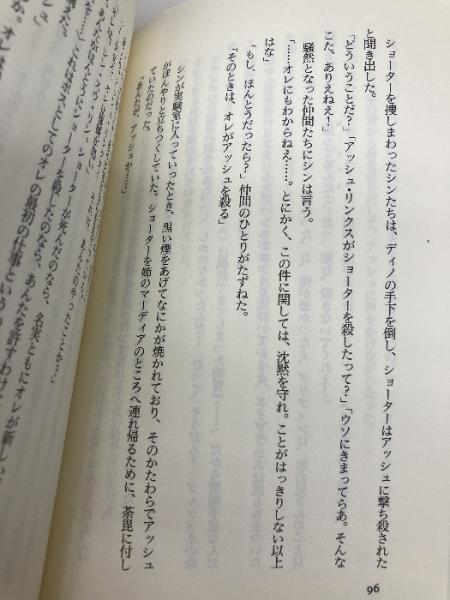 ショーターを捜しまわったシンたちは、ディノの手下を倒し、ショーターはアッシュに撃ち殺された
と聞き出した。
「どういうことだ?」「アッシュ・リンクスがショーターを殺したって?」「ウソにきまってらあ。そんな
こた、ありえねえ!」
騒然となった仲間たちにシンは言う。
「……オレにもわからねえ……。とにかく、この件に関しては、沈黙を守れ。ことがはっきりしない以上
はな」
「もし、ほんとうだったら?」仲間のひとりがたずねた。
「そのときは、オレがアッシュを殺る」
シンが実験室に入っていったとき、黒い煙をあげてなにかが焼かれており、そのかたわらでアッシュ
がぼんやりと立ちつくしていた。ショーターを姉のマーディアのところへ連れ帰るために、荼毘に付し
ていたのだった。
「あんたが、アッシュか……」
ショーターが死んだのなら、名実ともにオレが新しい
ーターを殺したのなら、あんたを許すわけ
てのオレの最初の仕事という
か。オレは
96